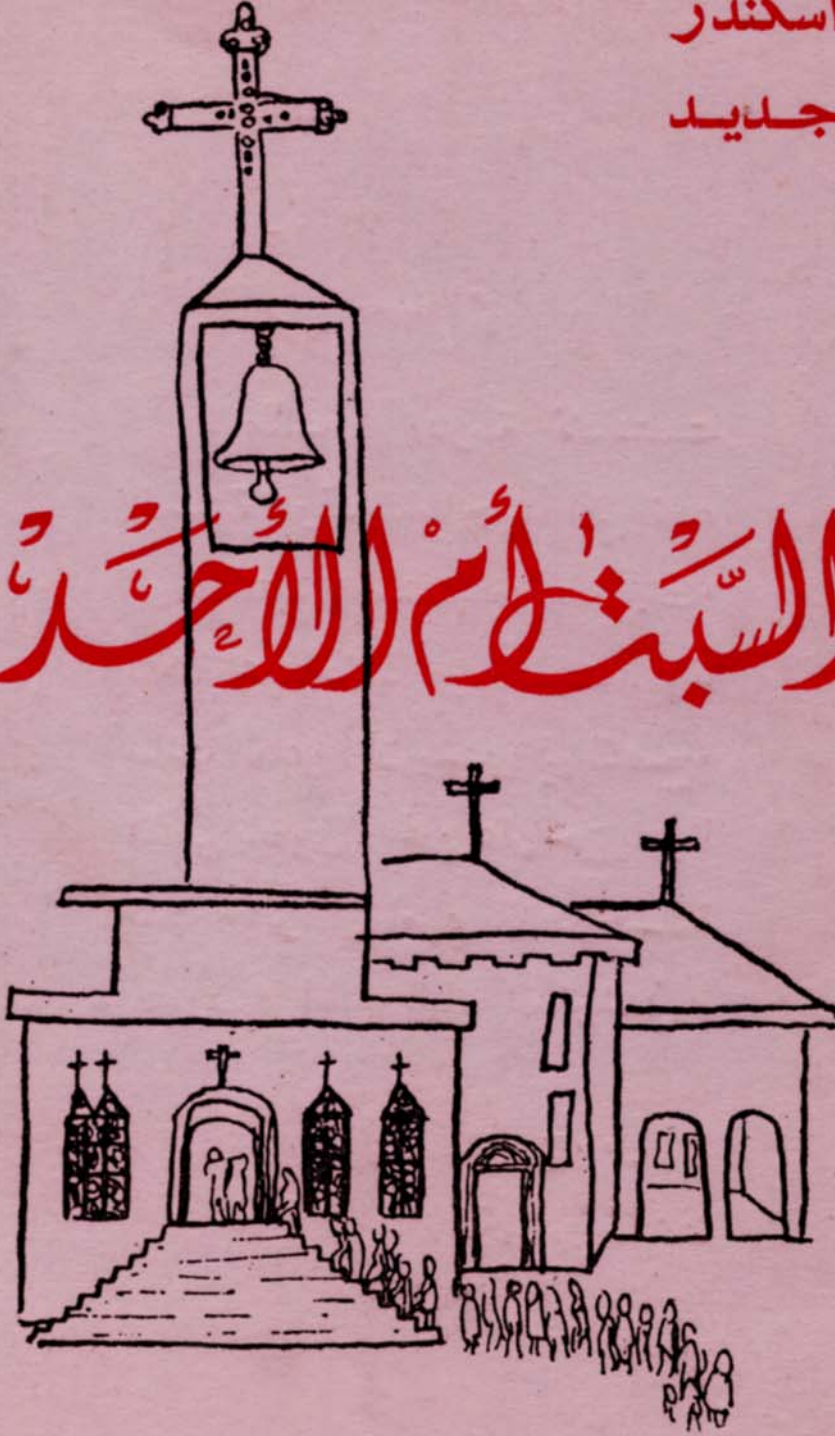 اسكندر
جديد
السَّبَت أَمْ الأَحَدْ